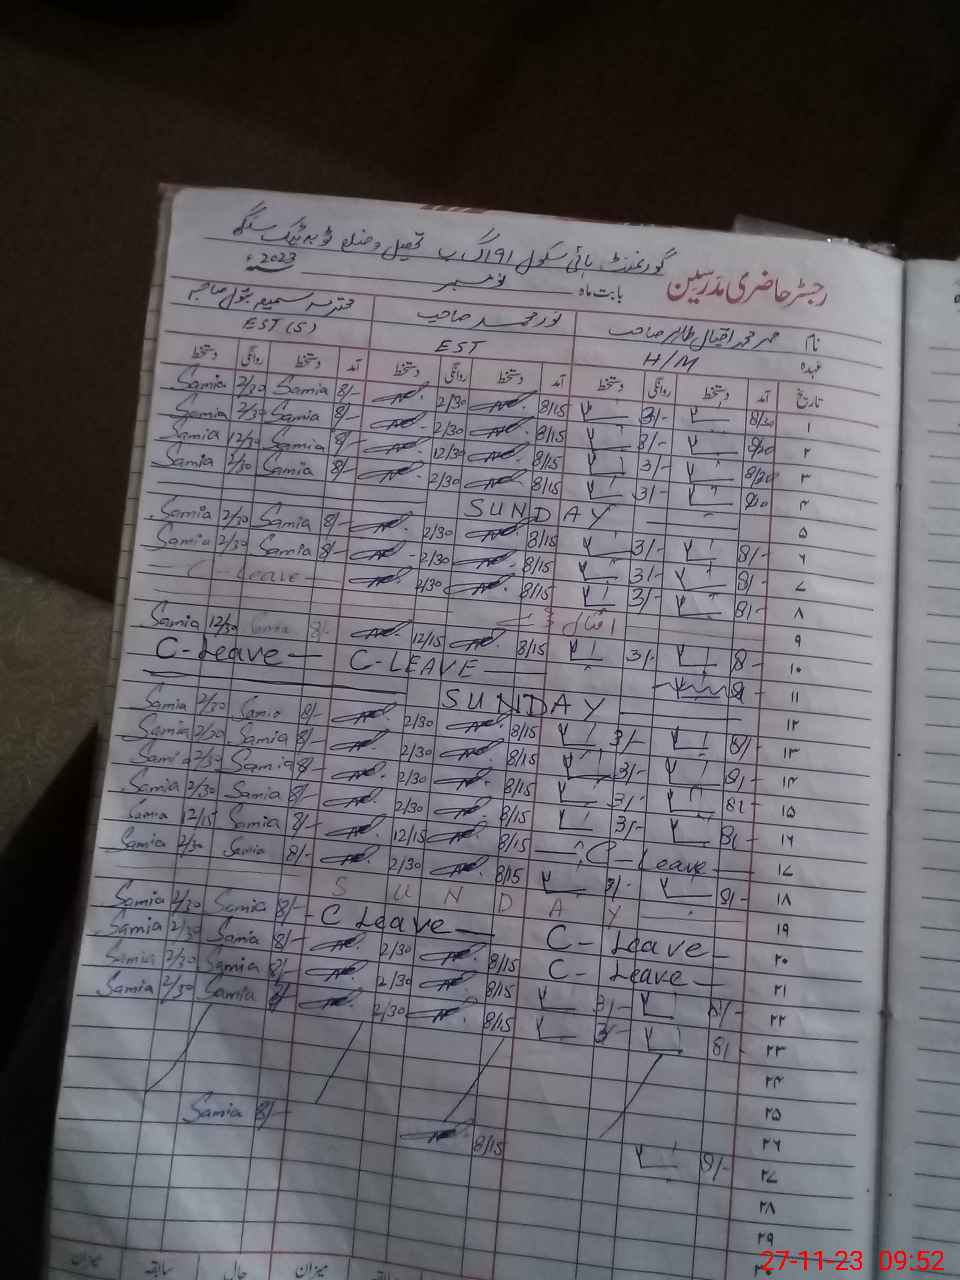 گورنمنٹ ہائی سکول 191 گ ب تحصیل و ضلع ٹوبہ ٹیک سنگھ
رجسٹر حاضری مدرسین بابت ماہ نومبر 2023ء
نام محمد اقبال طاہر صاحب نور محمد صاحب محترمہ سمیعہ بتول صاحبہ
عہدہ H/M EST EST(S)
تاریخ آمد دستخط روانگی دستخط آمد دستخط روانگی دستخط آمد دستخط روانگی دستخط
۱ 8/30 3/- 8/15 2/30 8/- Samia 2/30 Samia
۲ 8/20 3/- 8/15 2/30 8/- Samia 2/30 Samia
۳ 8/20 3/- 8/15 12/30 8/- Samia 12/30 Samia
۴ 3/- 8/15 2/30 8/- Samia 2/30 Samia
۵ SUNDAY
۶ 8/- 3/- 8/15 2/30 8/- Samia 2/30 Samia
۷ 8/- 3/- 8/15 2/30 8/- Samia 2/30 Samia
۸ 8/- 3/- 8/15 2/30 C-Leave
۹ اقبال ڈے
۱۰ 8- 3/- 8/15 12/15 8/- Samia 12/30 Samia
۱۱ 8 C-LEAVE C-Leave
۱۲ SUNDAY
۱۳ 8/- 3/- 8/15 2/30 8/- Samia 2/30 Samia
۱۴ 8/- 3/- 8/15 2/30 8/- Samia 2/30 Samia
۱۵ 8/- 3/- 8/15 2/30 8/- Samia 2/30 Samia
۱۶ 8/- 3/- 8/15 2/30 8/- Samia 2/30 Samia
۱۷ C-Leave 8/15 12/15 8/- Samia 12/15 Samia
۱۸ 8/- 3/- 8/15 2/30 8/- Samia 2/30 Samia
۱۹ SUNDAY
۲۰ C-Leave C Leave 8/- Samia 2/30 Samia
۲۱ C-Leave 8/15 2/30 8/- Samia 2/30 Samia
۲۲ 8/- 3/- 8/15 2/30 8/- Samia 2/30 Samia
۲۳ 8/- 3/- 8/15 2/30 8/- Samia 2/30 Samia
۲۴
۲۵
۲۶
۲۷ 8/- 8/15 8/- Samia
۲۸
۲۹
۳۰
میزان سابقہ حال میزان سابقہ
27-11-23 09:52